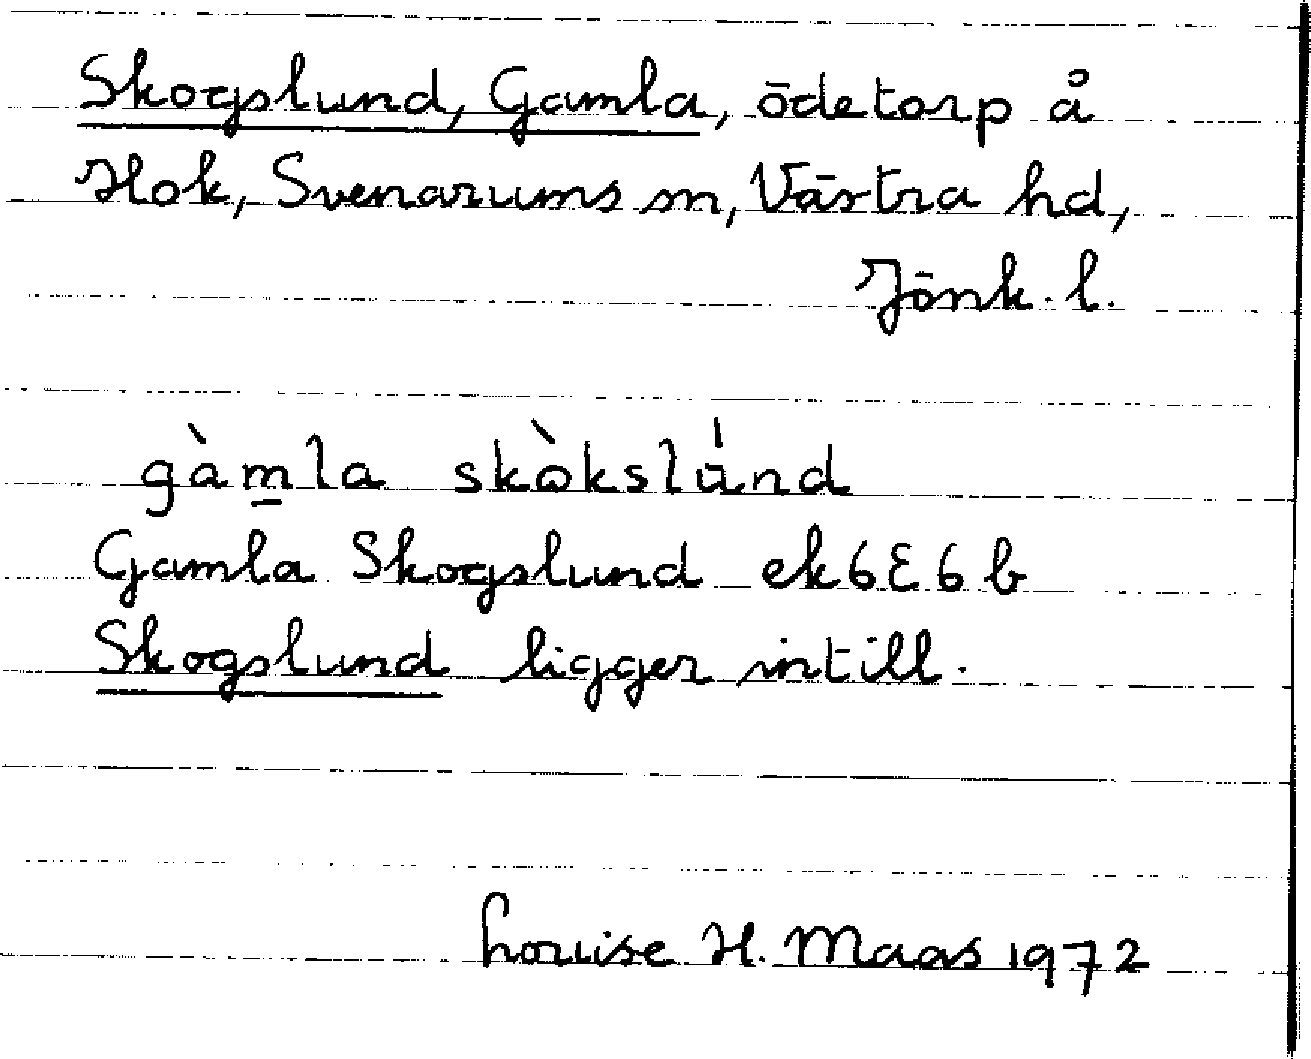 Skogslund, Gamla, ödetorp å
Hok, Svenarums sn, Västra hd,
Jönk. l.
gàm̲la skòkslu̍nd
Gamla Skogslund ek6E6b
Skogslund ligger intill.
Louise H. Maas 1972